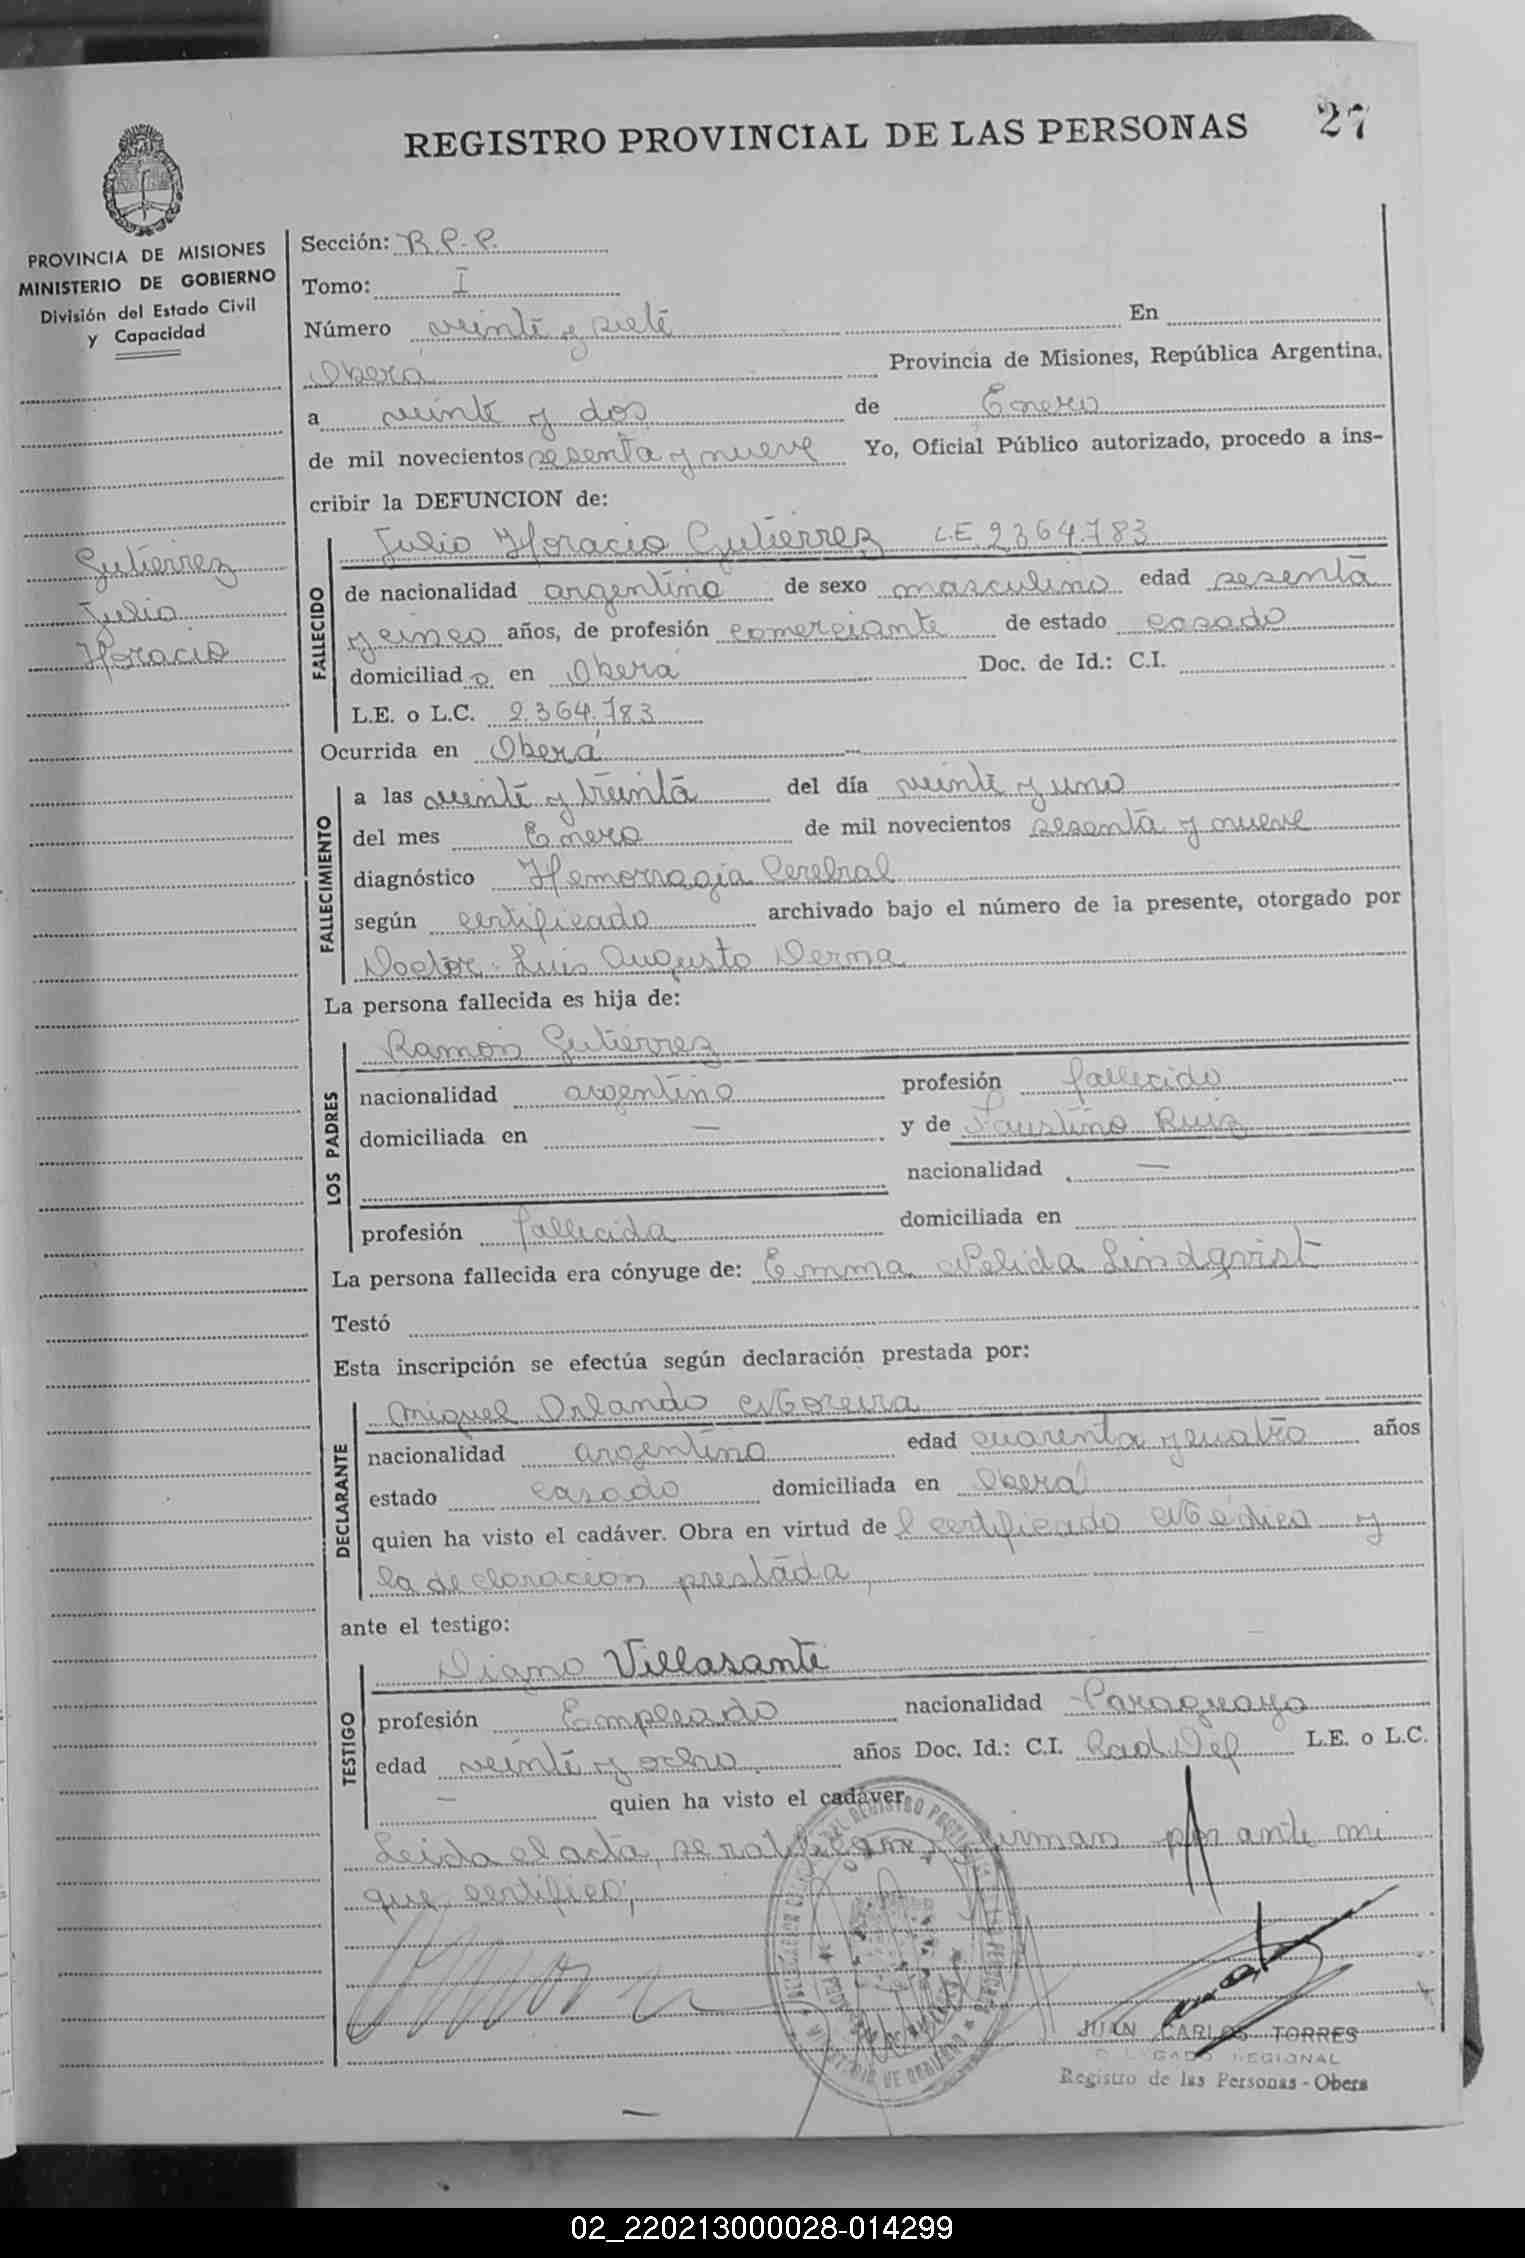 REGISTRO PROVINCIAL DE LAS PERSONAS 27
PROVINCIA DE MISIONES
MINISTERIO DE GOBIERNO
División del Estado Civil
y Capacidad
Gutiérrez
Julio
Horacio
Sección: R.P.P.
Tomo: I
Número veinte y siete En
Oberá Provincia de Misiones, República Argentina,
a veinte y dos de Enero
de mil novecientos sesenta y nueve Yo, Oficial Público autorizado, procedo a ins-
cribir la DEFUNCION de:
FALLECIDO
Julio Horacio Gutiérrez L.E. 2364.783
de nacionalidad argentino de sexo masculino edad sesenta
y cinco años, de profesión comerciante de estado casado
domiciliad o en Oberá Doc. de Id.: C.I.
L.E. o L.C. 2.364.783
Ocurrida en Oberá
FALLECIMIENTO
a las veinte y treinta del día veinte y uno
del mes Enero de mil novecientos sesenta y nueve
diagnóstico Hemorragia Cerebral
según certificado archivado bajo el número de la presente, otorgado por
Doctor Luis Augusto Derna
La persona fallecida es hija de:
LOS PADRES
Ramón Gutiérrez
nacionalidad argentino profesión fallecido
domiciliada en — y de Faustina Ruiz
nacionalidad —
profesión fallecida domiciliada en
La persona fallecida era cónyuge de: Emma Nelida Lindqvist
Testó
Esta inscripción se efectúa según declaración prestada por:
DECLARANTE
Miguel Orlando Moreira
nacionalidad argentino edad cuarenta y cuatro años
estado casado domiciliada en Oberá
quien ha visto el cadáver. Obra en virtud de l certificado Médico y
la declaración prestada,
ante el testigo:
TESTIGO
Villasante
profesión Empleado nacionalidad Paraguaya
edad veinte y ocho años Doc. Id.: C.I. L.E. o L.C.
— quien ha visto el cadáver.
Leida el acta, se ratifican y firman por ante mi
que certifico;
JUAN CARLOS TORRES
DELEGADO REGIONAL
Registro de las Personas - Obera
02_220213000028-014299